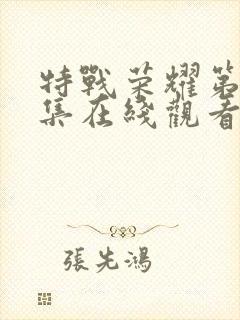 特戰荣耀第
集在綫觀看
張先鴻